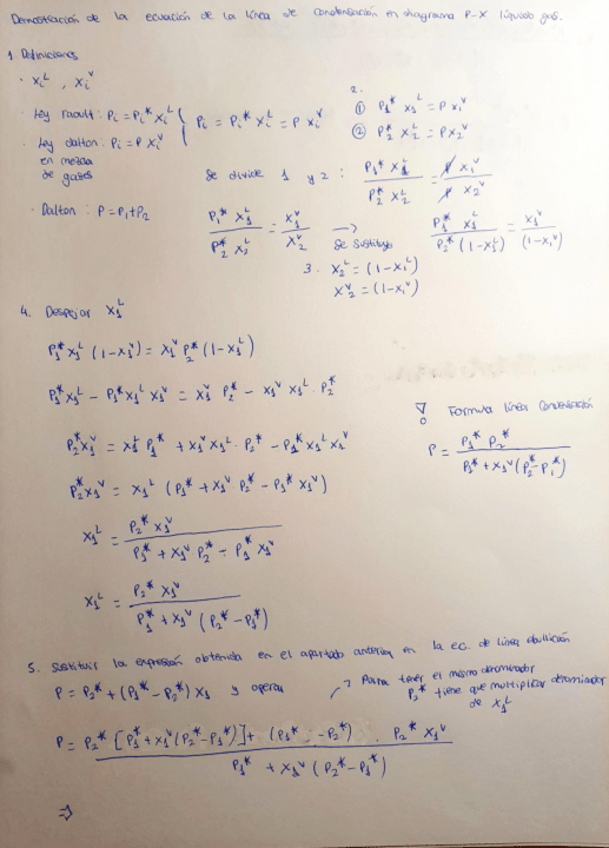 Demostración de la ecuación de la línea de condensación en diagrama P-X líquido gas.
1. Definiciones
· xᵢᴸ , xᵢⱽ
· Ley raoult: Pᵢ = Pᵢ* xᵢᴸ
· Ley dalton: Pᵢ = P xᵢⱽ
en mezcla
de gases
Pᵢ = Pᵢ* xᵢᴸ = P xᵢⱽ
2.
① P₁* x₁ᴸ = P x₁ⱽ
② P₂* x₂ᴸ = P x₂ⱽ
Se divide 1 y 2 : P₁* x₁ᴸ / P₂* x₂ᴸ = P x₁ⱽ / P x₂ⱽ
· Dalton : P = P₁ + P₂
P₁* x₁ᴸ / P₂* x₂ᴸ = x₁ⱽ / x₂ⱽ → Se sustituye P₁* x₁ᴸ / P₂* (1-x₁ᴸ) = x₁ⱽ / (1-x₁ⱽ)
3. x₂ᴸ = (1-x₁ᴸ)
x₂ⱽ = (1-x₁ⱽ)
4. Despejar x₁ᴸ
P₁* x₁ᴸ (1-x₁ⱽ) = x₁ⱽ P₂* (1-x₁ᴸ)
P₁* x₁ᴸ - P₁* x₁ᴸ x₁ⱽ = x₁ⱽ P₂* - x₁ⱽ x₁ᴸ · P₂*
P₂* x₁ⱽ = x₁ᴸ P₁* + x₁ⱽ x₁ᴸ · P₂* - P₁* x₁ᴸ x₁ⱽ
P₂* x₁ⱽ = x₁ᴸ (P₁* + x₁ⱽ P₂* - P₁* x₁ⱽ)
x₁ᴸ = P₂* x₁ⱽ / P₁* + x₁ⱽ P₂* - P₁* x₁ⱽ
x₁ᴸ = P₂* x₁ⱽ / P₁* + x₁ⱽ (P₂* - P₁*)
Formula línea condensación
P = P₁* P₂* / P₁* + x₁ⱽ (P₂* - P₁*)
5. Sustituir la expresión obtenida en el apartado anterior en la ec. de línea ebullición
P = P₂* + (P₁* - P₂*) x₁ y operar
Para tener el mismo denominador
P₂* tiene que multiplicar denominador
de x₁ᴸ
P = P₂* [P₁* + x₁ⱽ (P₂* - P₁*)] + (P₁* - P₂*) · P₂* x₁ⱽ / P₁* + x₁ⱽ (P₂* - P₁*)
⇒